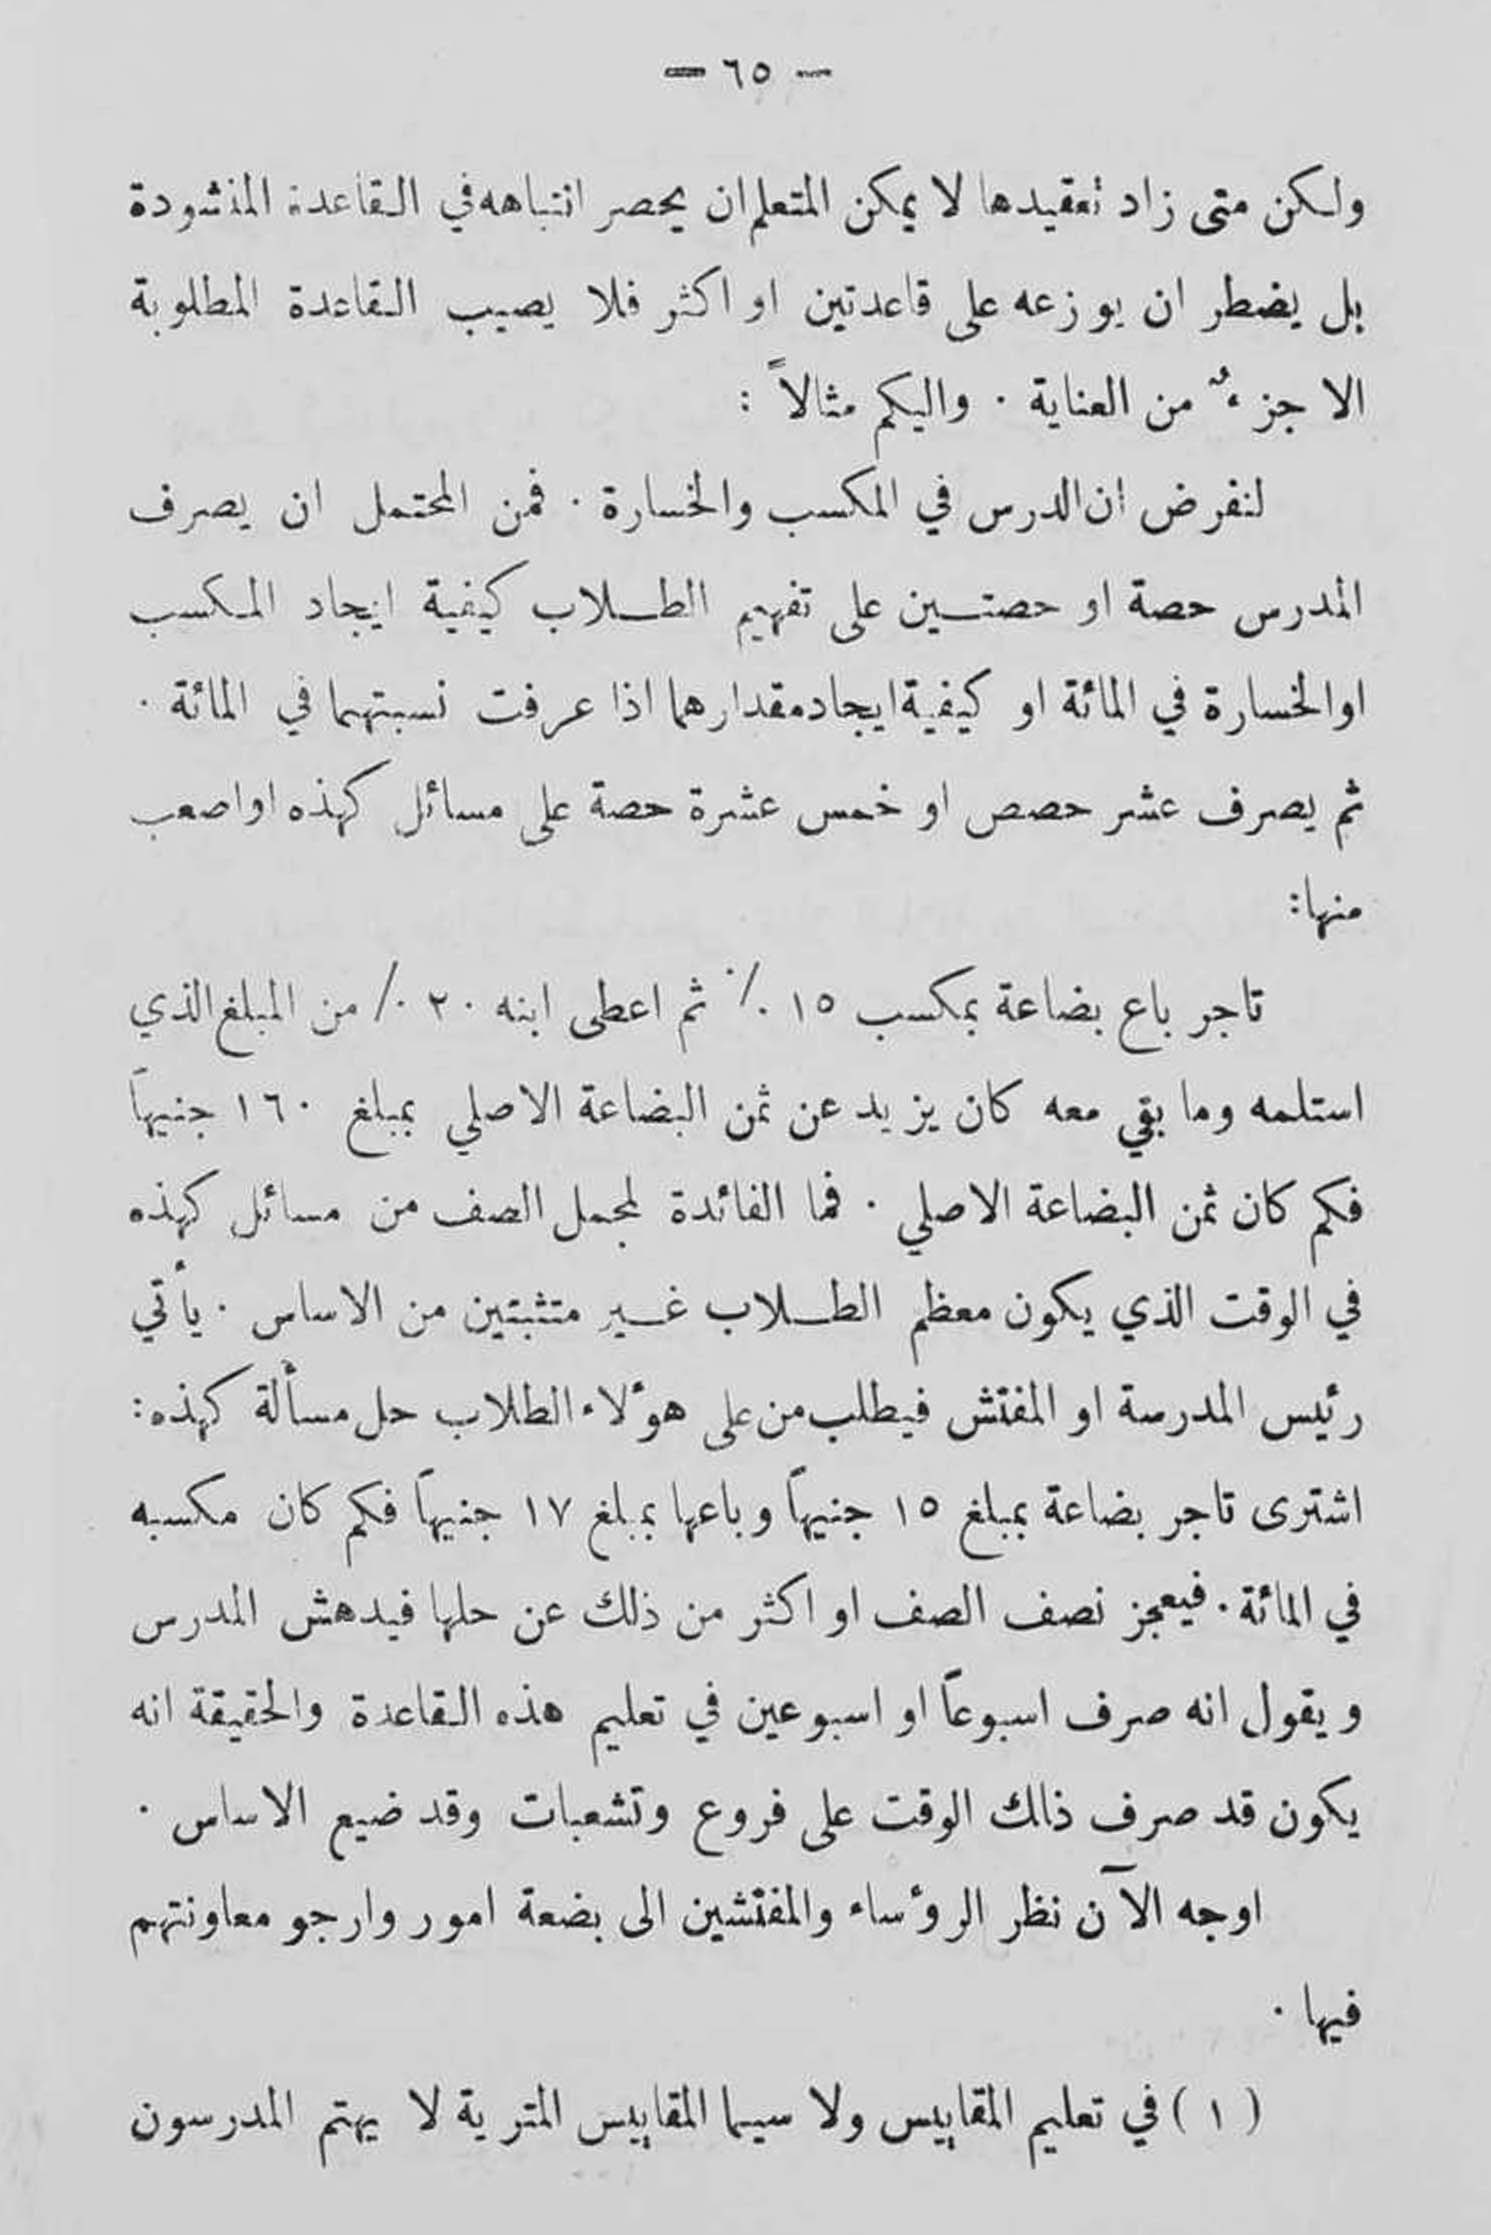 — ٦٥ —
ولكن متى زاد تعقيدها لا يمكن المتعلم ان يحصر انتباهه في القاعدة المنشودة
بل يضطر ان يوزعه على قاعدتين او اكثر فلا يصيب القاعدة المطلوبة
الا جزءٌ من العناية . واليكم مثالاً :
لنفرض ان الدرس في المكسب والخسارة . فمن المحتمل ان يصرف
المدرس حصة او حصتين على تفهيم الطلاب كيفية ايجاد المكسب
او الخسارة في المائة او كيفية ايجاد مقدارهما اذا عرفت نسبتهما في المائة .
ثم يصرف عشر حصص او خمس عشرة حصة على مسائل كهذه او اصعب
منها :
تاجر باع بضاعة بمكسب ١٥ ٪ ثم اعطى ابنه ٢٠ ٪ من المبلغ الذي
استلمه وما بقي معه كان يزيد عن ثمن البضاعة الاصلي بمبلغ ١٦٠ جنيهاً
فكم كان ثمن البضاعة الاصلي . فما الفائدة لمجمل الصف من مسائل كهذه
في الوقت الذي يكون معظم الطلاب غير متثبتين من الاساس . يأتي
رئيس المدرسة او المفتش فيطلب من على هؤلاء الطلاب حل مسألة كهذه :
اشترى تاجر بضاعة بمبلغ ١٥ جنيهاً وباعها بمبلغ ١٧ جنيهاً فكم كان مكسبه
في المائة . فيعجز نصف الصف او اكثر من ذلك عن حلها فيدهش المدرس
ويقول انه صرف اسبوعاً او اسبوعين في تعليم هذه القاعدة والحقيقة انه
يكون قد صرف ذالك الوقت على فروع وتشعبات وقد ضيع الاساس .
اوجه الآن نظر الرؤساء والمفتشين الى بضعة امور وارجو معاونتهم
فيها .
( ١ ) في تعليم المقاييس ولا سيما المقاييس المترية لا يهتم المدرسون